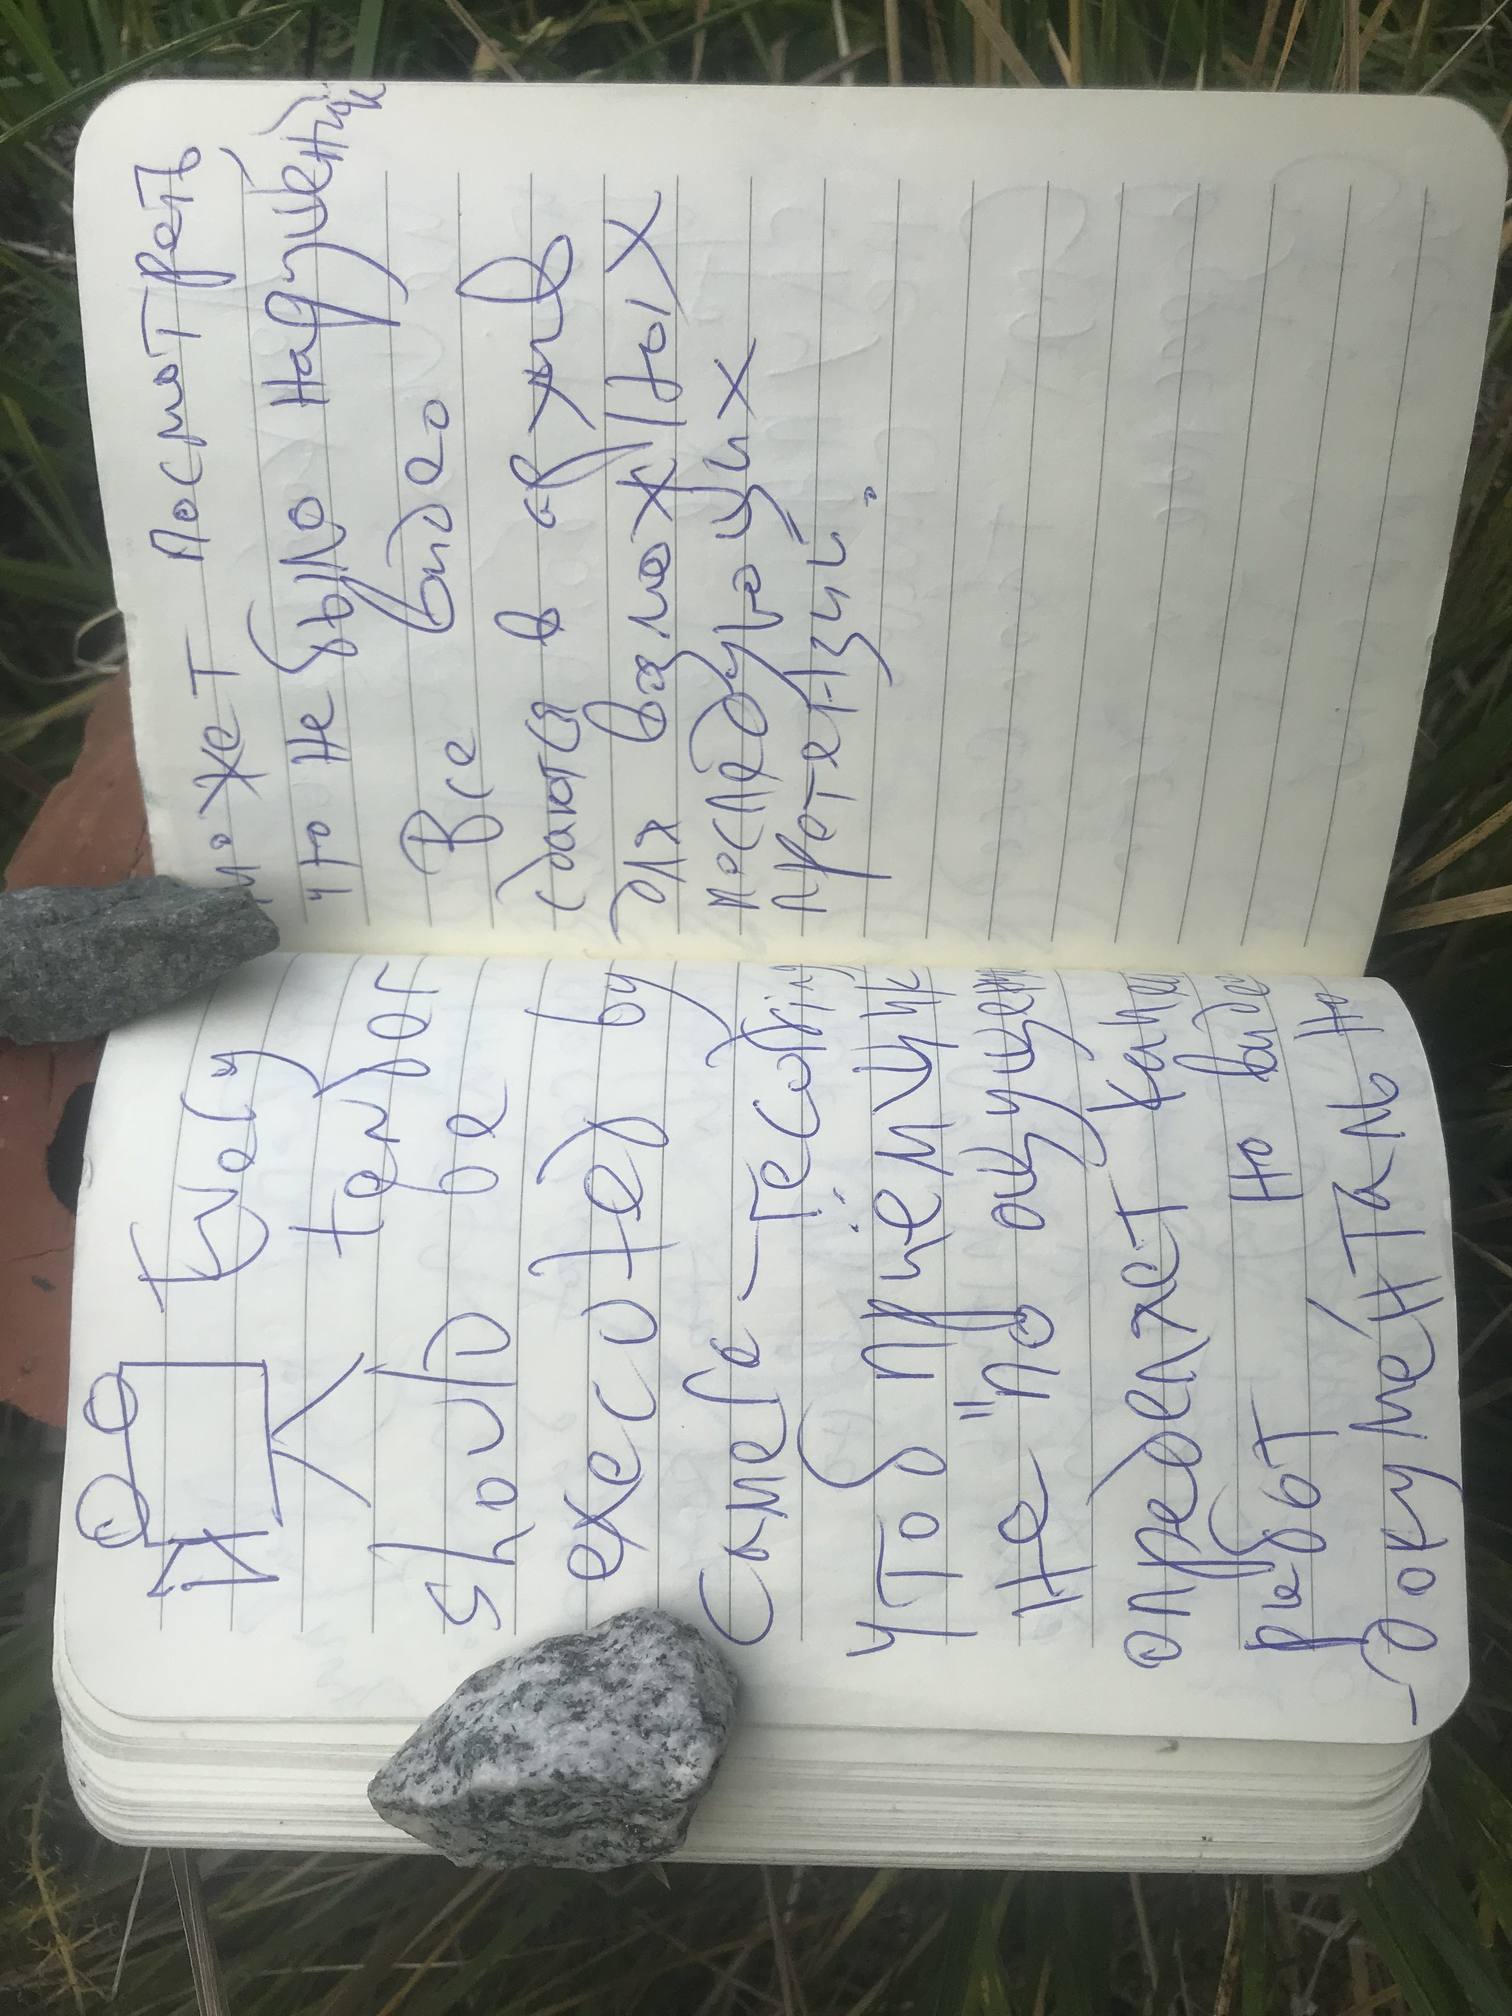 Every
tender
should be
executed by
Camera-recording
чтоб приёмщик
не "по
определяет
работ но видео
документально
может посмотреть
что не было
Все видео
сдаются в архив
для возможных
последующих
претензий.